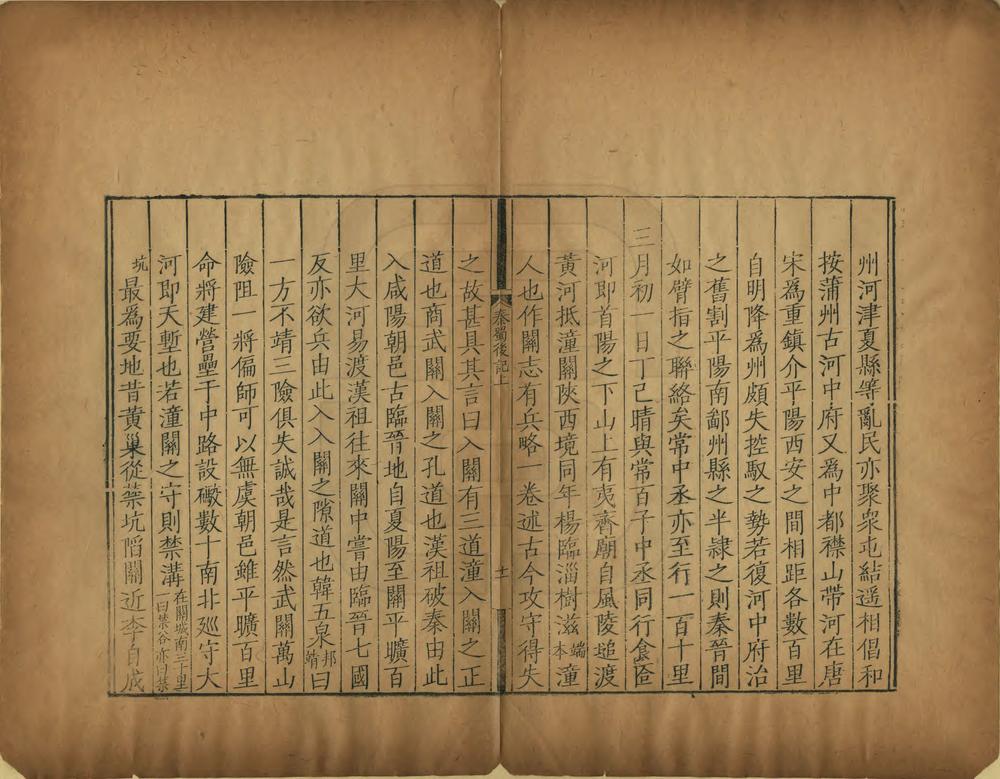 州河津夏縣等亂民亦聚衆屯結遥相倡和
按蒲州古河中府又爲中都襟山帶河在唐
宋爲重鎮介平陽西安之間相距各數百里
自明降爲州頗失控馭之勢若復河中府治
之舊割平陽南鄙州縣之半隷之則秦晉間
如臂指之聯絡矣常中丞亦至行一百十里
三月初一日丁己晴與常百子中丞同行食䭕
河即首陽之下山上有夷齊廟自風陵䢍渡
黃河抵潼關陝西境同年楊臨淄樹滋端本潼
人也作關志有兵略一卷述古今攻守得失
秦蜀後記上
十一
之故甚具其言曰入關有三道潼入關之正
道也商武關入關之孔道也漢祖破秦由此
入咸陽朝邑古臨晉地自夏陽至關平曠百
里大河易渡漢祖往來關中嘗由臨晉七國
反亦欲兵由此入入關之隙道也韓五泉邦靖曰
一方不靖三險俱失誠哉是言然武關萬山
險阻一將偏師可以無虞朝邑雖平曠百里
命將建營壘于中路設礮數十南北廵守大
河即天塹也若潼關之守則禁溝在關城南三十里一曰禁谷亦曰禁
坑最爲要地昔黃巢從禁坑䧟關近李自成